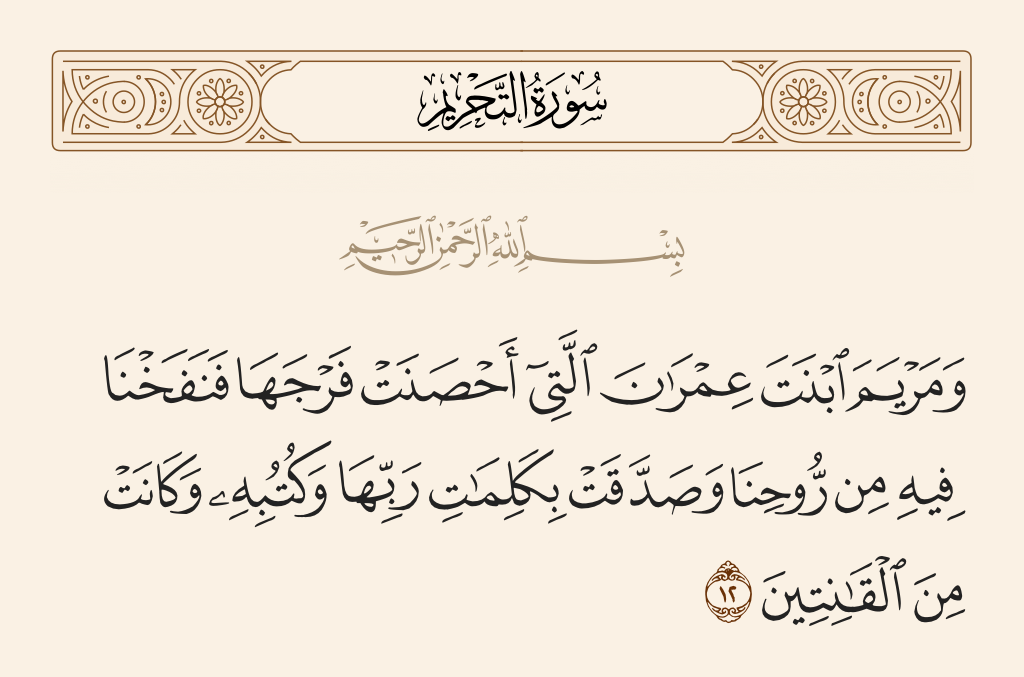 سُورَةُ التَّحْرِيمِ
بِسْمِ ٱللَّهِ ٱلرَّحْمَٰنِ ٱلرَّحِيمِ
وَمَرْيَمَ ٱبْنَتَ عِمْرَٰنَ ٱلَّتِىٓ أَحْصَنَتْ فَرْجَهَا فَنَفَخْنَا
فِيهِ مِن رُّوحِنَا وَصَدَّقَتْ بِكَلِمَٰتِ رَبِّهَا وَكُتُبِهِۦ وَكَانَتْ
مِنَ ٱلْقَٰنِتِينَ ١٢